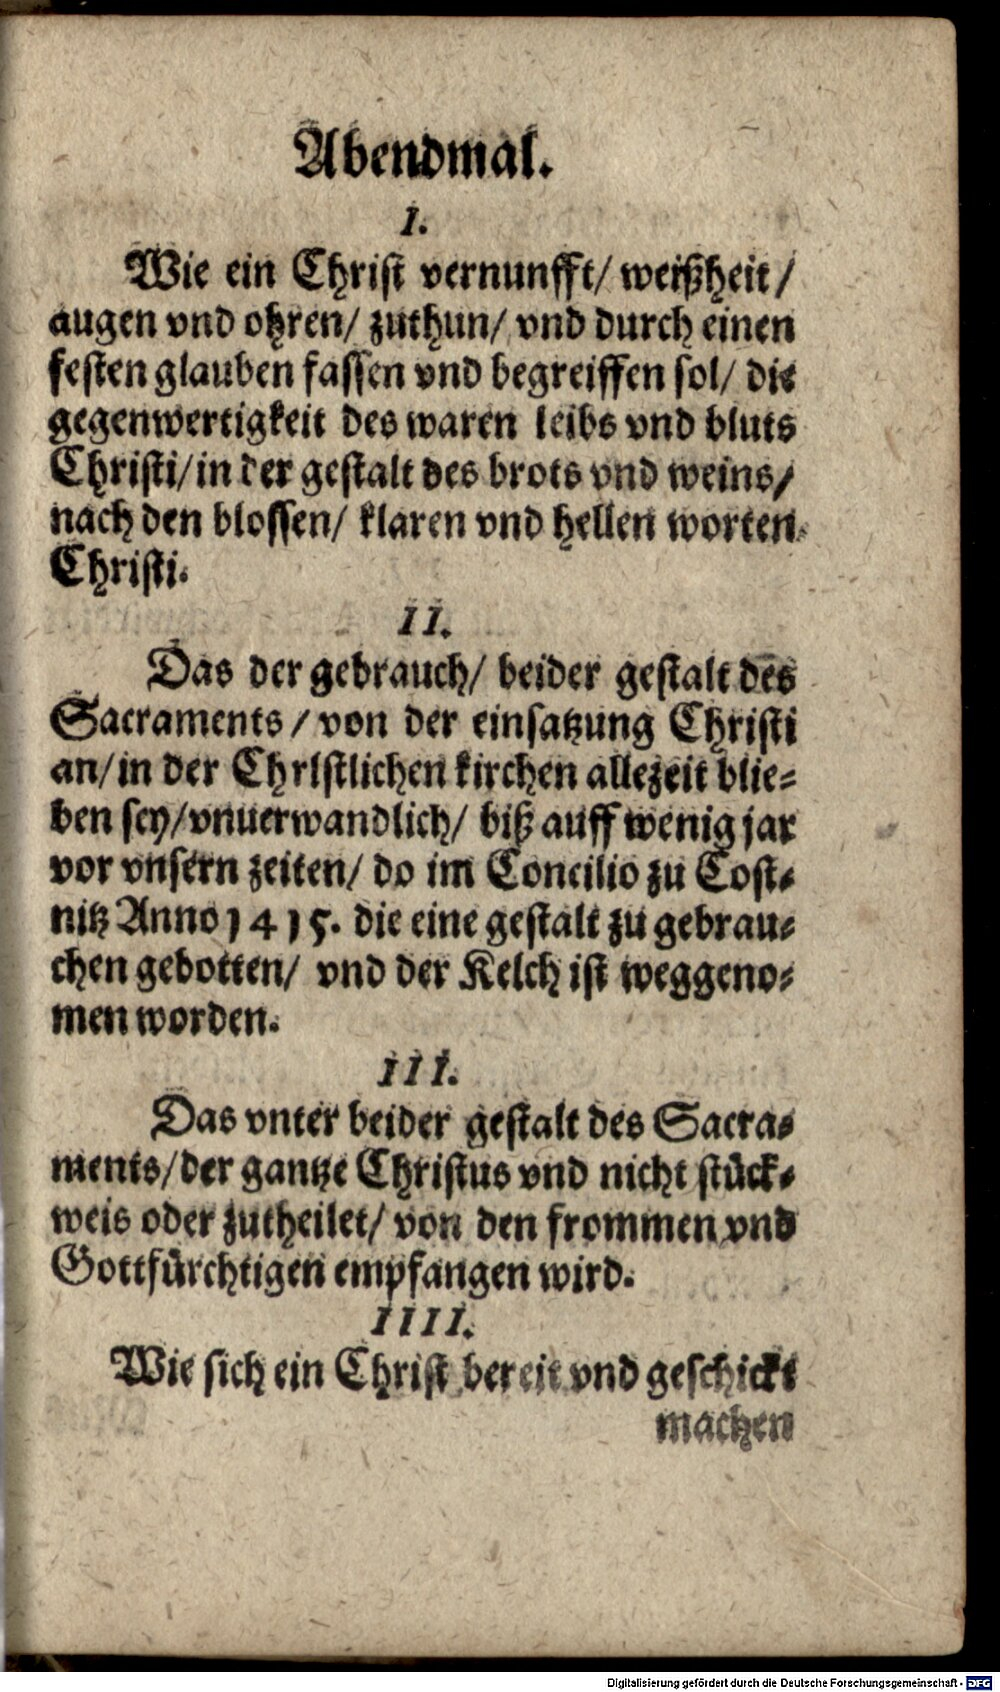 Abendmal.
I.
Wie ein Christ vernunfft/ weißheit/
augen vnd ohren/ zuthun/ vnd durch einen
festen glauben fassen vnd begreiffen sol/ die
gegenwertigkeit des waren leibs vnd bluts
Christi/ in der gestalt des brots vnd weins/
nach den blossen/ klaren vnd hellen worten
Christi.
II.
Das der gebrauch/ beider gestalt des
Sacraments/ von der einsatzung Christi
an/ in der Chrlstlichen kirchen allezeit blie-
ben sey/ vnuerwandlich/ biß auff wenig jar
vor vnsern zeiten/ do im Concilio zu Cost-
nitz Anno 1415. die eine gestalt zu gebrau-
chen gebotten/ vnd der Kelch ist weggeno-
men worden.
III.
Das vnter beider gestalt des Sacra-
ments/ der gantze Christus vnd nicht stück-
weis oder zutheilet/ von den frommen vnd
Gottfürchtigen empfangen wird.
IIII.
Wie sich ein Christ bereit vnd geschickt
machen
Digitalisierung gefördert durch die Deutsche Forschungsgemeinschaft - DFG